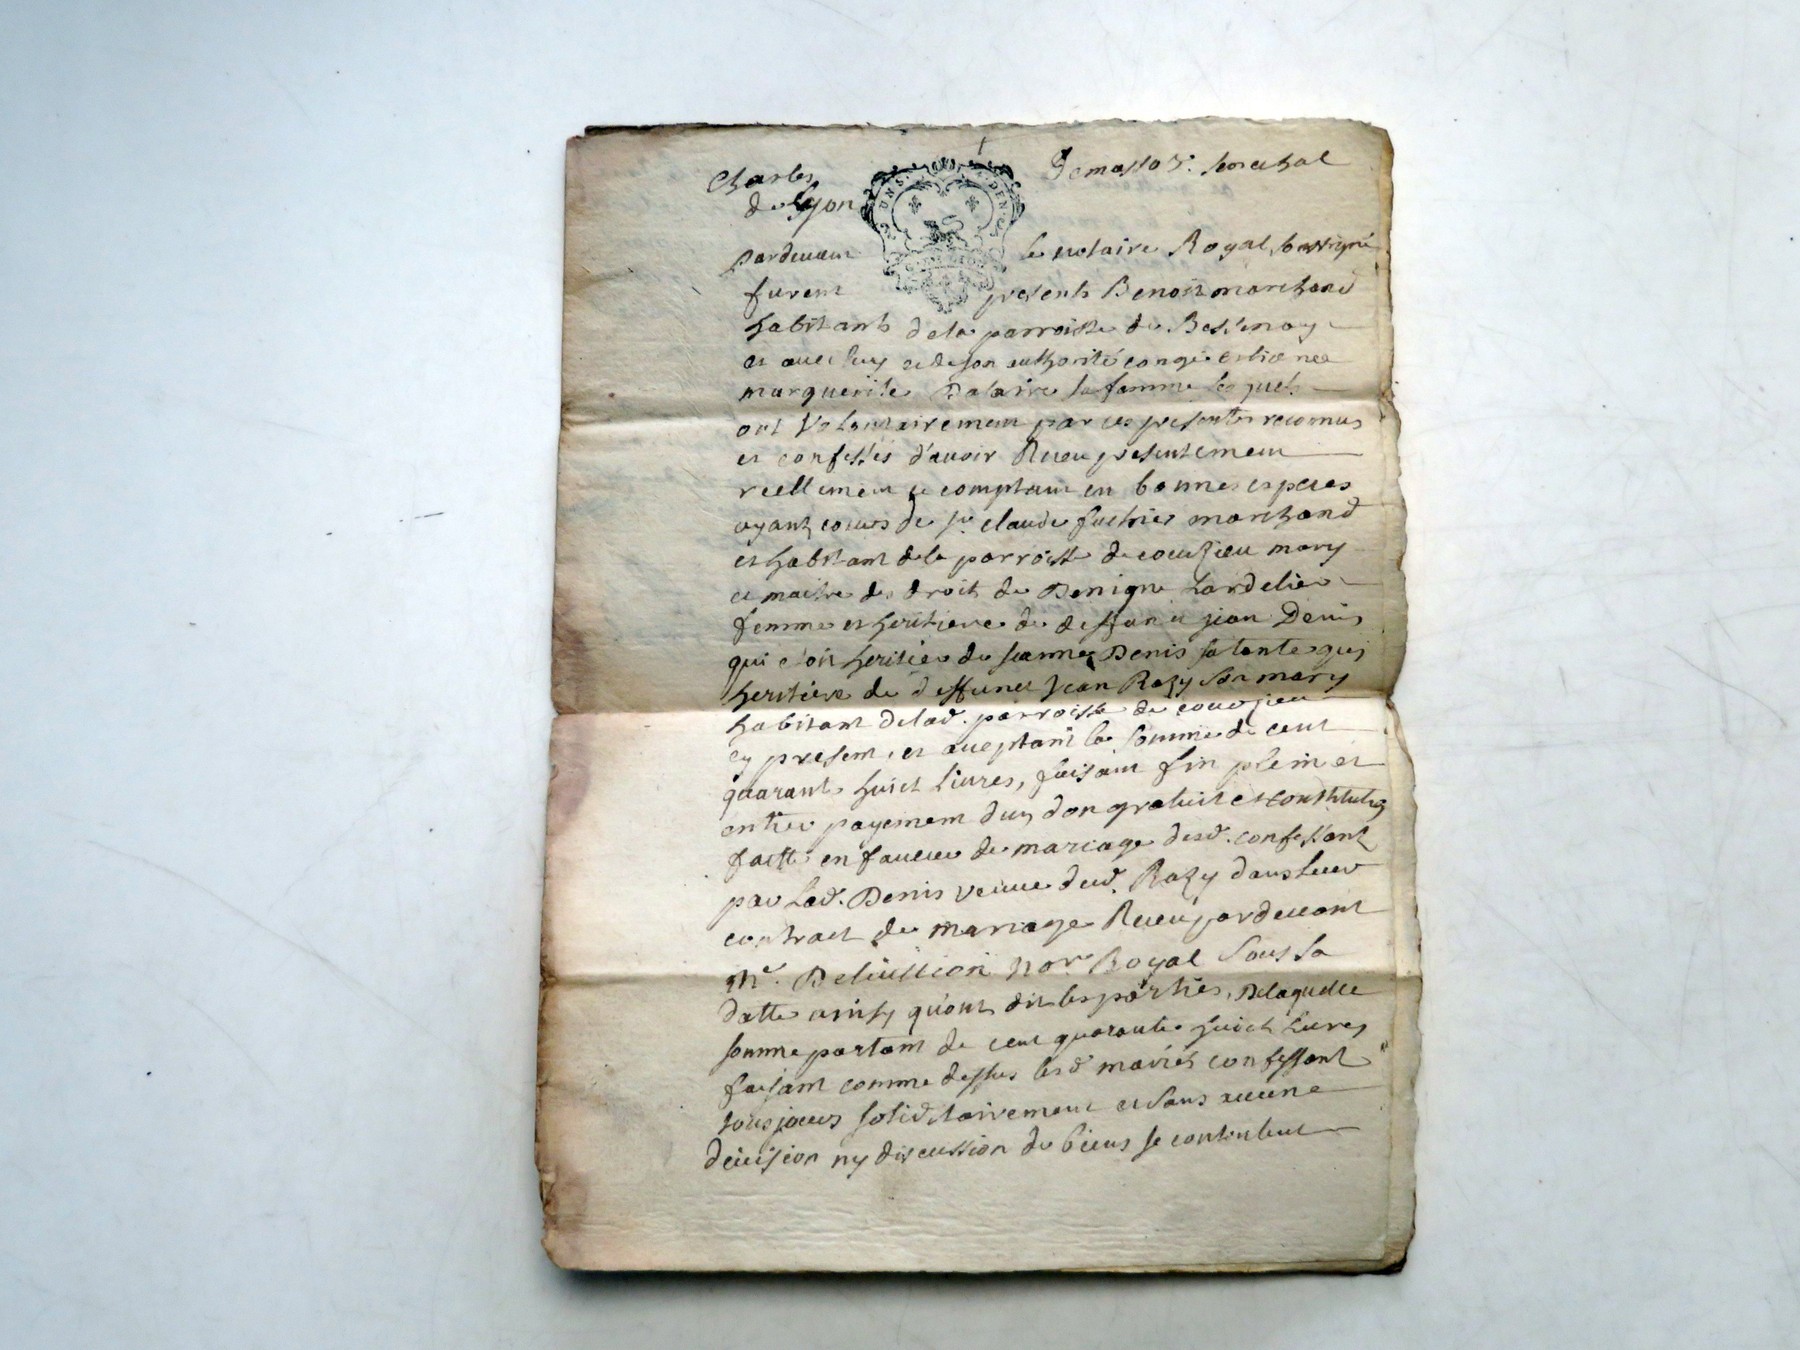 Charles Demasso Sr. senechal
de Lyon
UNS. DEN.
pardevant le notaire Royal soussigné
furent presents Benoist marchand
habitants de la parroisse de Bessenay
et avec luy et de son authorité congé et licence
marguerite Dalaire sa femme lesquels
ont Volontairement par ces presentes reconnus
et confessés d'avoir Receu presentement
reellement et comptant en bonnes especes
ayant cours de sr claude marchand
et habitant de la parroisse de couzieu mary
et maitre des droits de Benigne Lardelier
femme et heritiere de deffunct jean Denis
qui etoit heritier de jeanne Denis sa tante qui
heritiere de deffunct Jean Razy son mary
habitant de lad. parroisse de couzieu
cy present, et acceptant la somme de cent
quarante huict livres, faisant fin plein et
entier payement dun don gratuit et constitution
faitte en faveur de mariage desd. confessants
par Lad. Denis veuve dud. Razy dans leur
contract de mariage Receu pardevant
Me. Not. Royal sous sa
datte ainsy quont dit les parties, Delaquelle
somme partant de cent quarante huict livres
faisant comme dessus lesd mariés confessant
tousjours solidairement et sans aucune
division ny discussion de biens se contentent